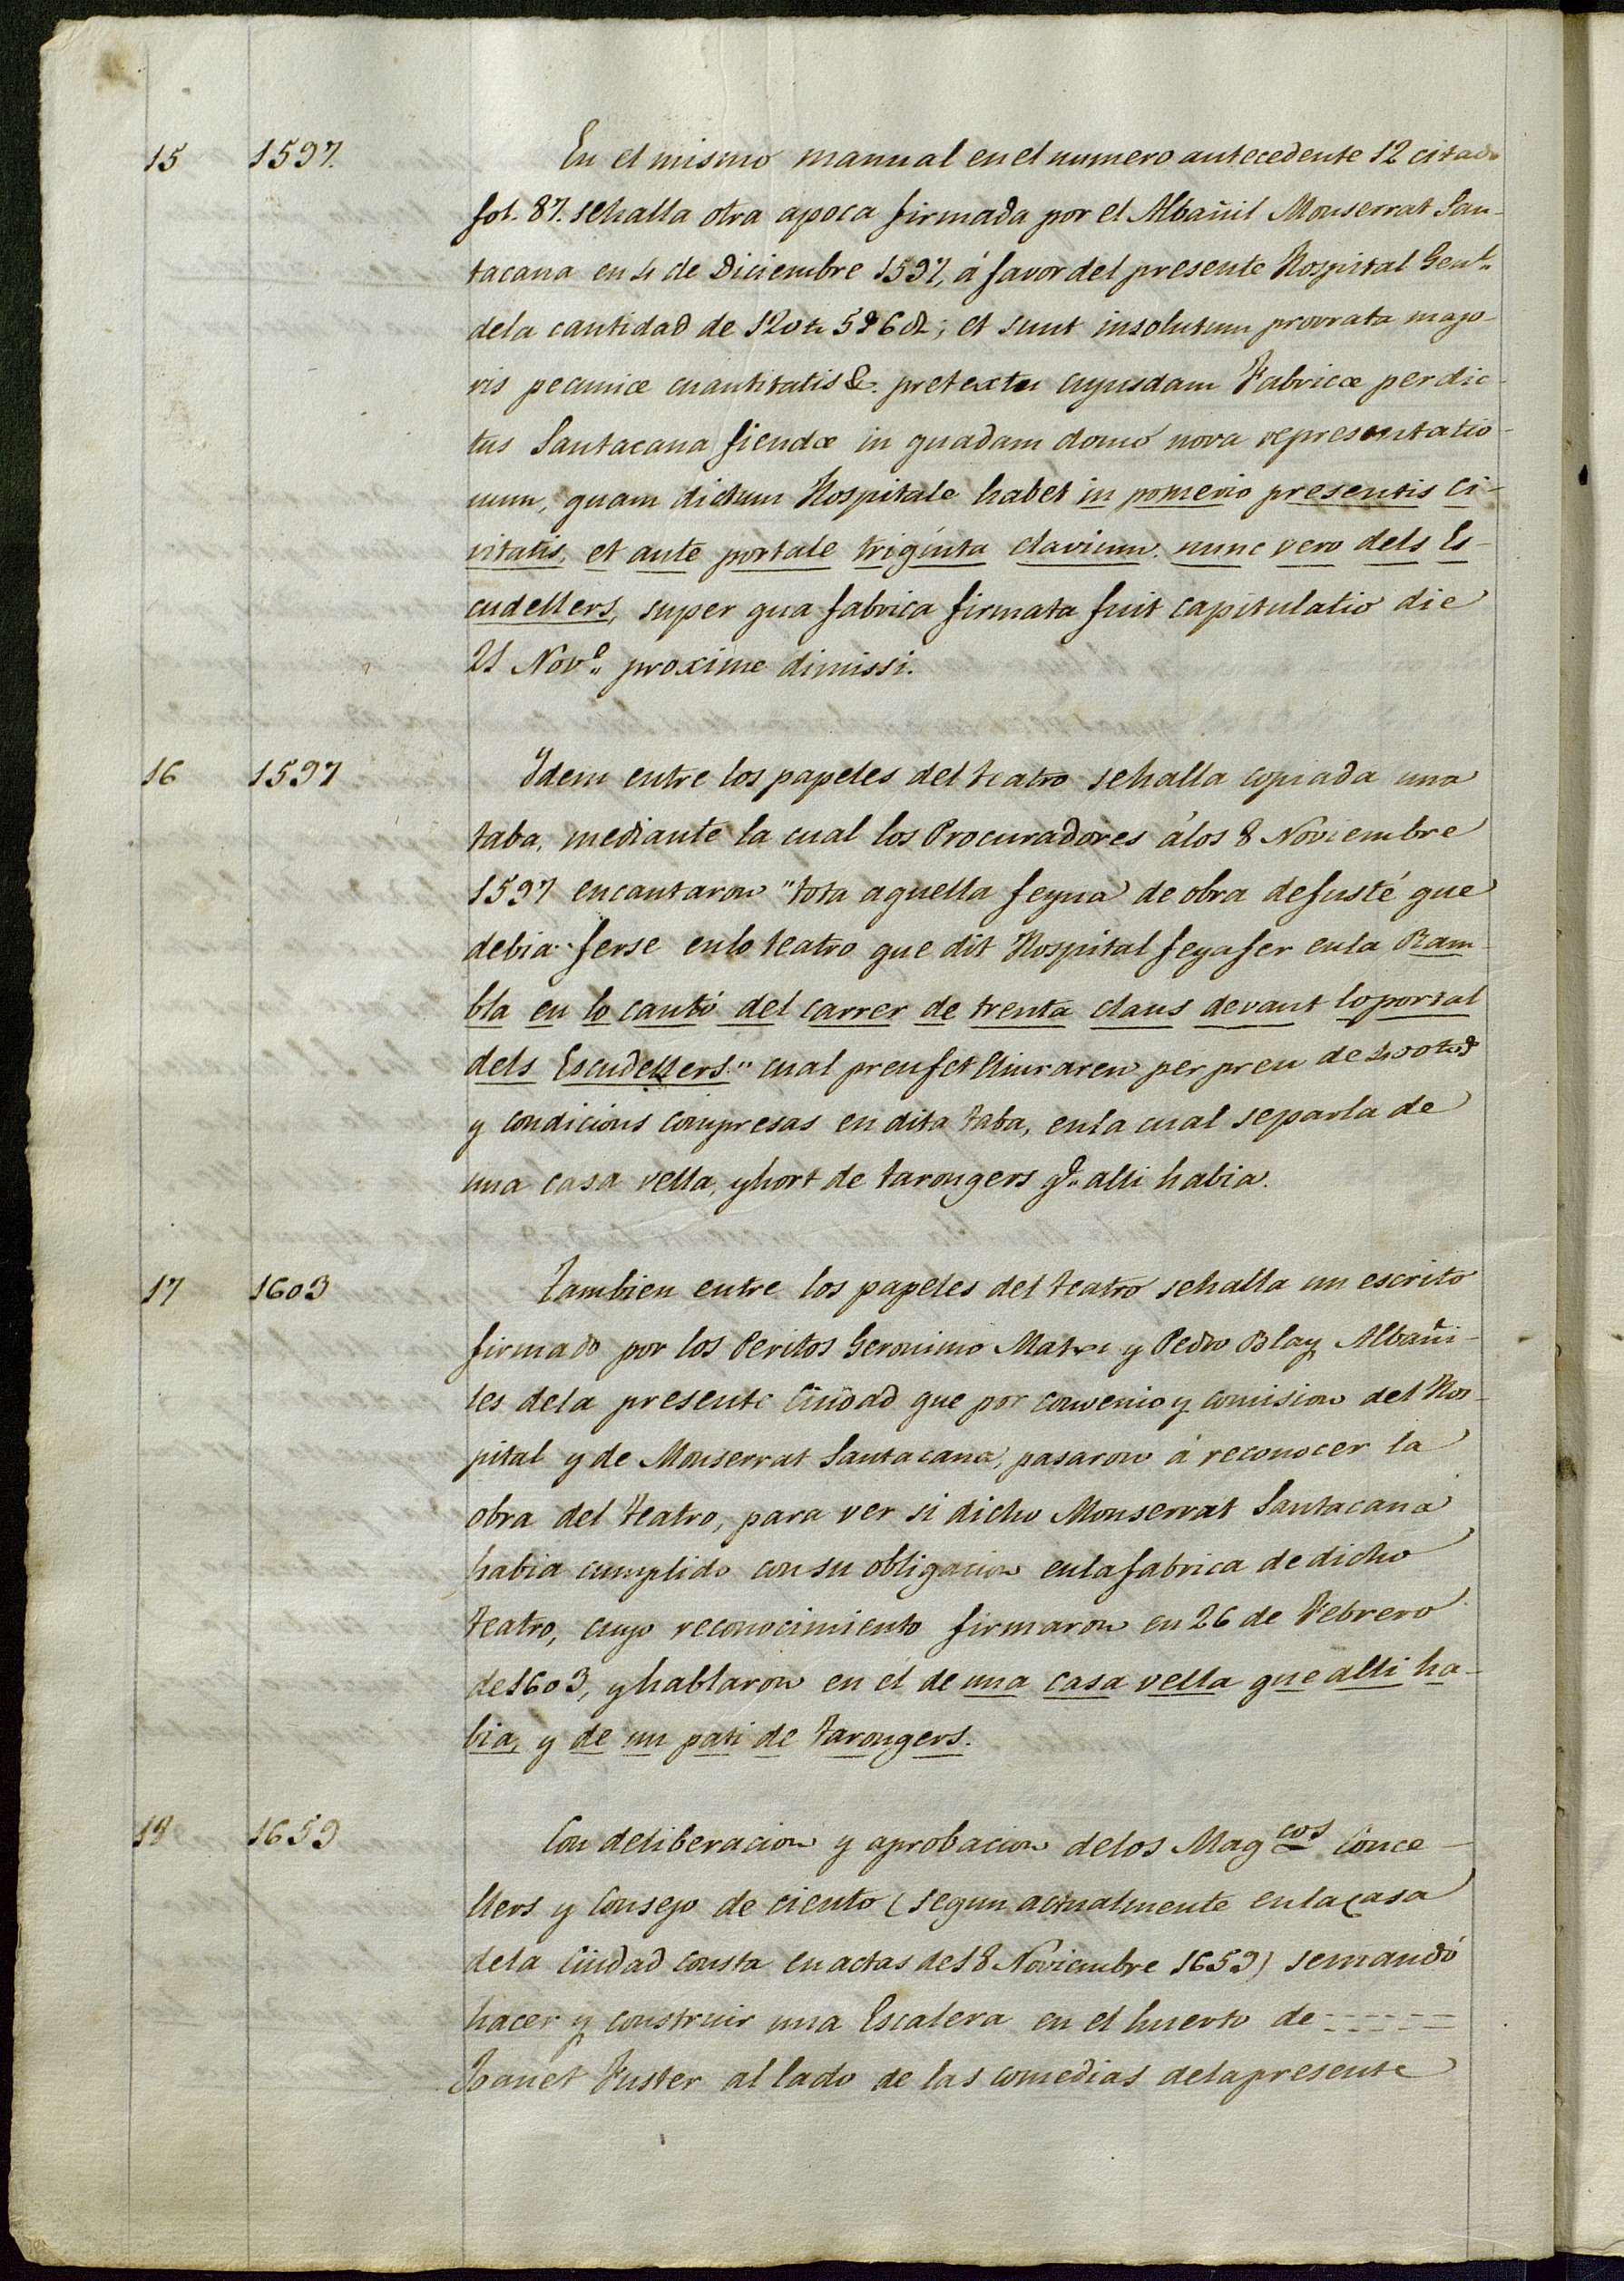 15 1597. En el mismo manual en el numero antecedente 12 citado
fol. 87. sehalla otra apoca firmada por el Albañil Monserrat San-
tacana en 4 de Diciembre 1597, á favor del presente Hospital Genl.
dela cantidad de 120 ; et sunt insolutum prorrata majo-
ris pecuniæ cuantitatis &. pretextu cujusdam Fabricæ per dic-
tus Santacana fiendæ in quadam domo nova representatio-
num, quam dictum Hospitale habet in pomerio presentis ci-
vitatis, et ante portale triginta clavium. nunc vero dels Es-
cudellers, super qua fabrica firmata fuit capitulatio die
21 Nove. proxime dimissi.
16 1597 Ydem entre los papeles del teatro sehalla copiada una
taba, mediante la cual los Procuradores álos 8 Noviembre
1597 encantaron "tota aquella feyna de obra defusté que
debia ferse enlo teatro que dit Hospital feyafer enla Ram-
bla en lo cantó del carrer de trenta claus devant loportal
dels Escudellers." cual preufet lliuraren per preu de
y condicions compresas en dita taba, enla cual separla de
una casa vella, yhort de tarongers qe. alli habia.
17 1603 Tambien entre los papeles del teatro sehalla un escrito
firmado por los Peritos Geronimo y Pedro Blay Albañi-
les dela presente Ciudad que por convenio y comision del Hos-
pital y de Monserrat Santacana, pasaron á reconocer la
obra del teatro, para ver si dicho Monserrat Santacana
habia cumplido con su obligacion enlafabrica de dicho
teatro, cuyo reconocimiento firmaron en 26 de Febrero
de1603, yhablaron en él de una casa vella que alli ha-
bia, y de un pati de tarongers.
18 1659 Con deliberacion y aprobacion delos Magcos Conce-
llers y Consejo de ciento (segun actualmente enlacasa
dela Ciudad consta en actas de18 Noviembre 1659) semandó
hacer y construir una Escalera en el huerto de - - - - -
Fuster al lado de las comedias delapresente